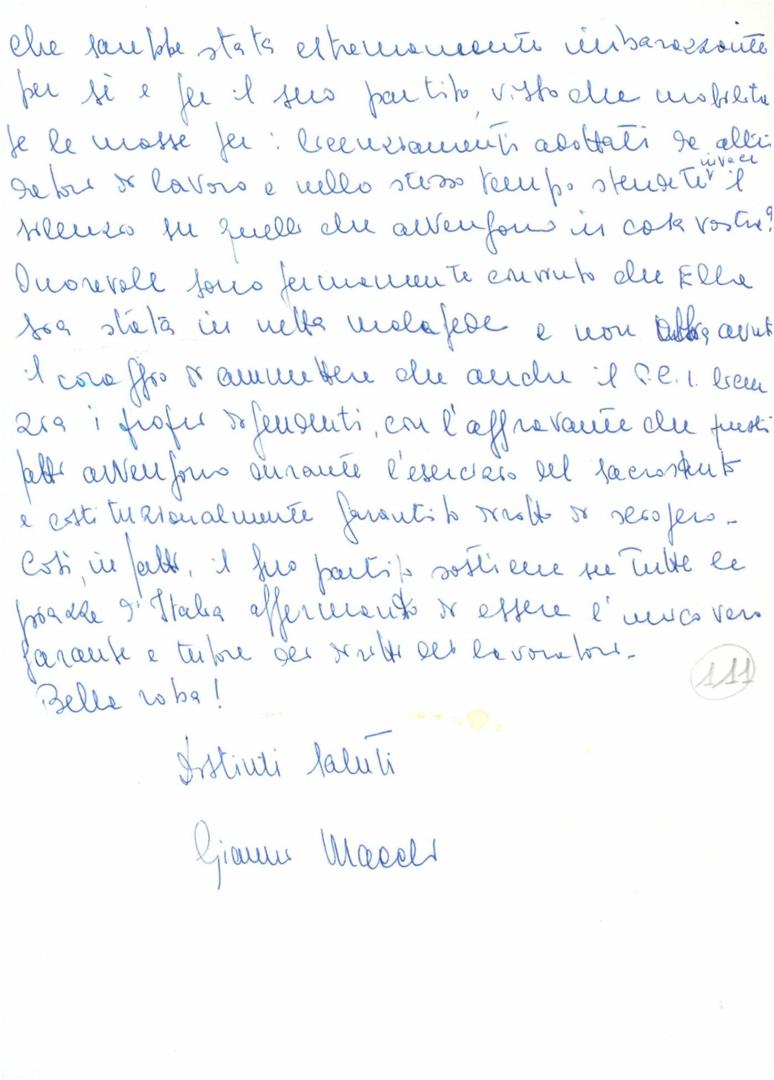 che sarebbe stata estremamente imbarazzante
per sè e per il suo partito, visto che mobilita
te le masse per i licenziamenti adottati da altri
datori di lavoro e nello stesso tempo stendete invece il
silenzio su quelli che avvengono in casa vostra?
Onorevole sono fermamente convinto che Ella
sia stata in netta malafede e non abbia avuto
il coraggio di ammettere che anche il P.C.I. licen
zia i propri dipendenti, con l'aggravante che questi
fatti avvengono durante l'esercizio del sacrosanto
e costituzionalmente garantito diritto di sciopero.
Così, infatti, il Suo partito sostiene su tutte le
piazze d'Italia affermando di essere l'unico vero
garante e tutore dei diritti dei lavoratori.
Bella roba!
111
Distinti saluti
Gianni